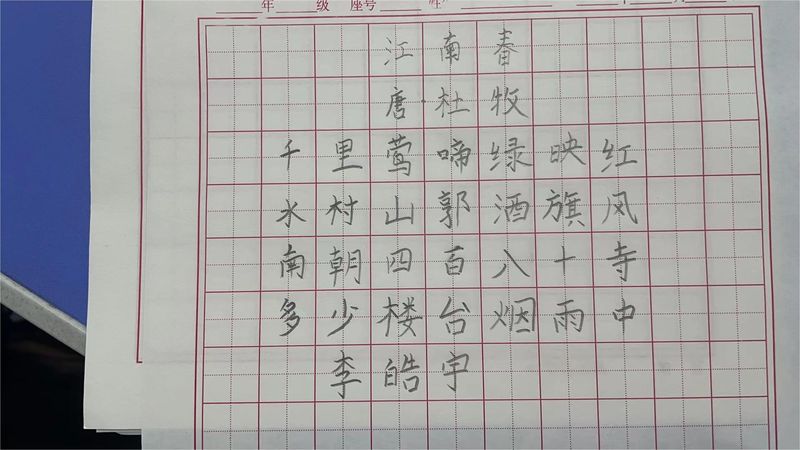 年 级 座号 姓
江南春
唐·杜牧
千里莺啼绿映红
水村山郭酒旗风
南朝四百八十寺
多少楼台烟雨中
李皓宇